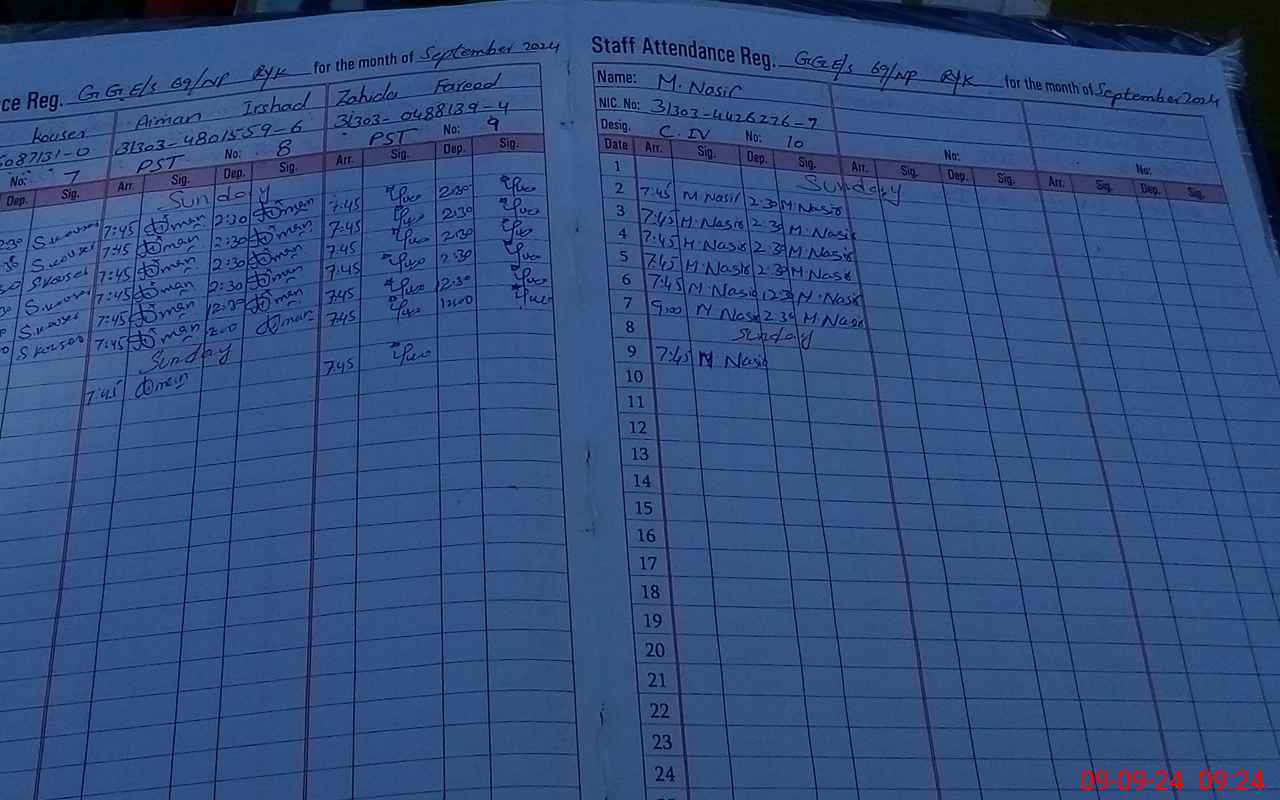 ce Reg. GGE/s 69/NP RYK for the month of September 2024
Kouser Aiman Irshad Zahida Fareed
087131-0 31303-4801559-6 31303-0488139-4
No: 7 PST No: 8 PST No: 9
Dep. Sig. Arr. Sig. Dep. Sig. Arr. Sig. Dep. Sig.
Sunday
2:30 S.kouser 7:45 Aiman 2:30 Aiman 7:45 2:30
S.kouser 7:45 Aiman 2:30 Aiman 7:45 2:30
S.kouser 7:45 Aiman 2:30 Aiman 7:45 2:30
S.kouser 7:45 Aiman 2:30 Aiman 7:45 2:30
S.kouser 7:45 Aiman 12:30 Aiman 7:45 12:30
S.kouser 7:45 Aiman 2:00 Aiman 7:45
Sunday
7:45 Aiman 7:45
Staff Attendance Reg. GGE/s 69/NP RYK for the month of September 2024
Name: M.Nasir
NIC. No: 31303-4426276-7
Desig. C.IV No: 10 No: No:
Date Arr. Sig. Dep. Sig. Arr. Sig. Dep. Sig. Arr. Sig. Dep. Sig.
1 Sunday
2 7:45 M Nasir 2:30 M.Nasir
3 7:45 M.Nasir 2:30 M.Nasir
4 7:45 M.Nasir 2:30 M.Nasir
5 7:45 M.Nasir 2:30 M.Nasir
6 7:45 M.Nasir 12:30 M.Nasir
7 9:00 M Nasir 2:30 M Nasir
8 Sunday
9 7:45 M Nasir
10
11
12
13
14
15
16
17
18
19
20
21
22
23
24
09-09-24 09:24